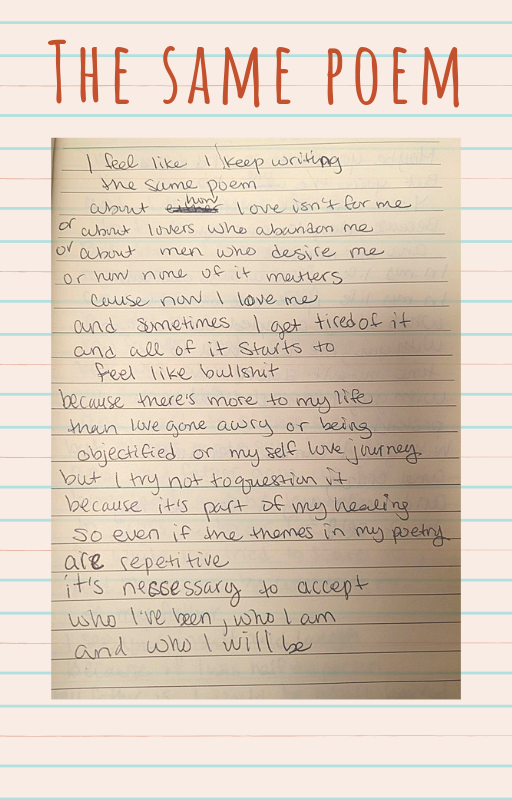 THE SAME POEM
I feel like I keep writing
the same poem
about how love isn't for me
or about lovers who abandon me
or about men who desire me
or how none of it matters
cause now I love me
and sometimes I get tired of it
and all of it starts to
feel like bullshit
because there's more to my life
than love gone awry or being
objectified or my self love journey
but I try not to question it
because it's part of my healing
so even if the themes in my poetry
are repetitive
it's nessessary to accept
who I've been, who I am
and who I will be